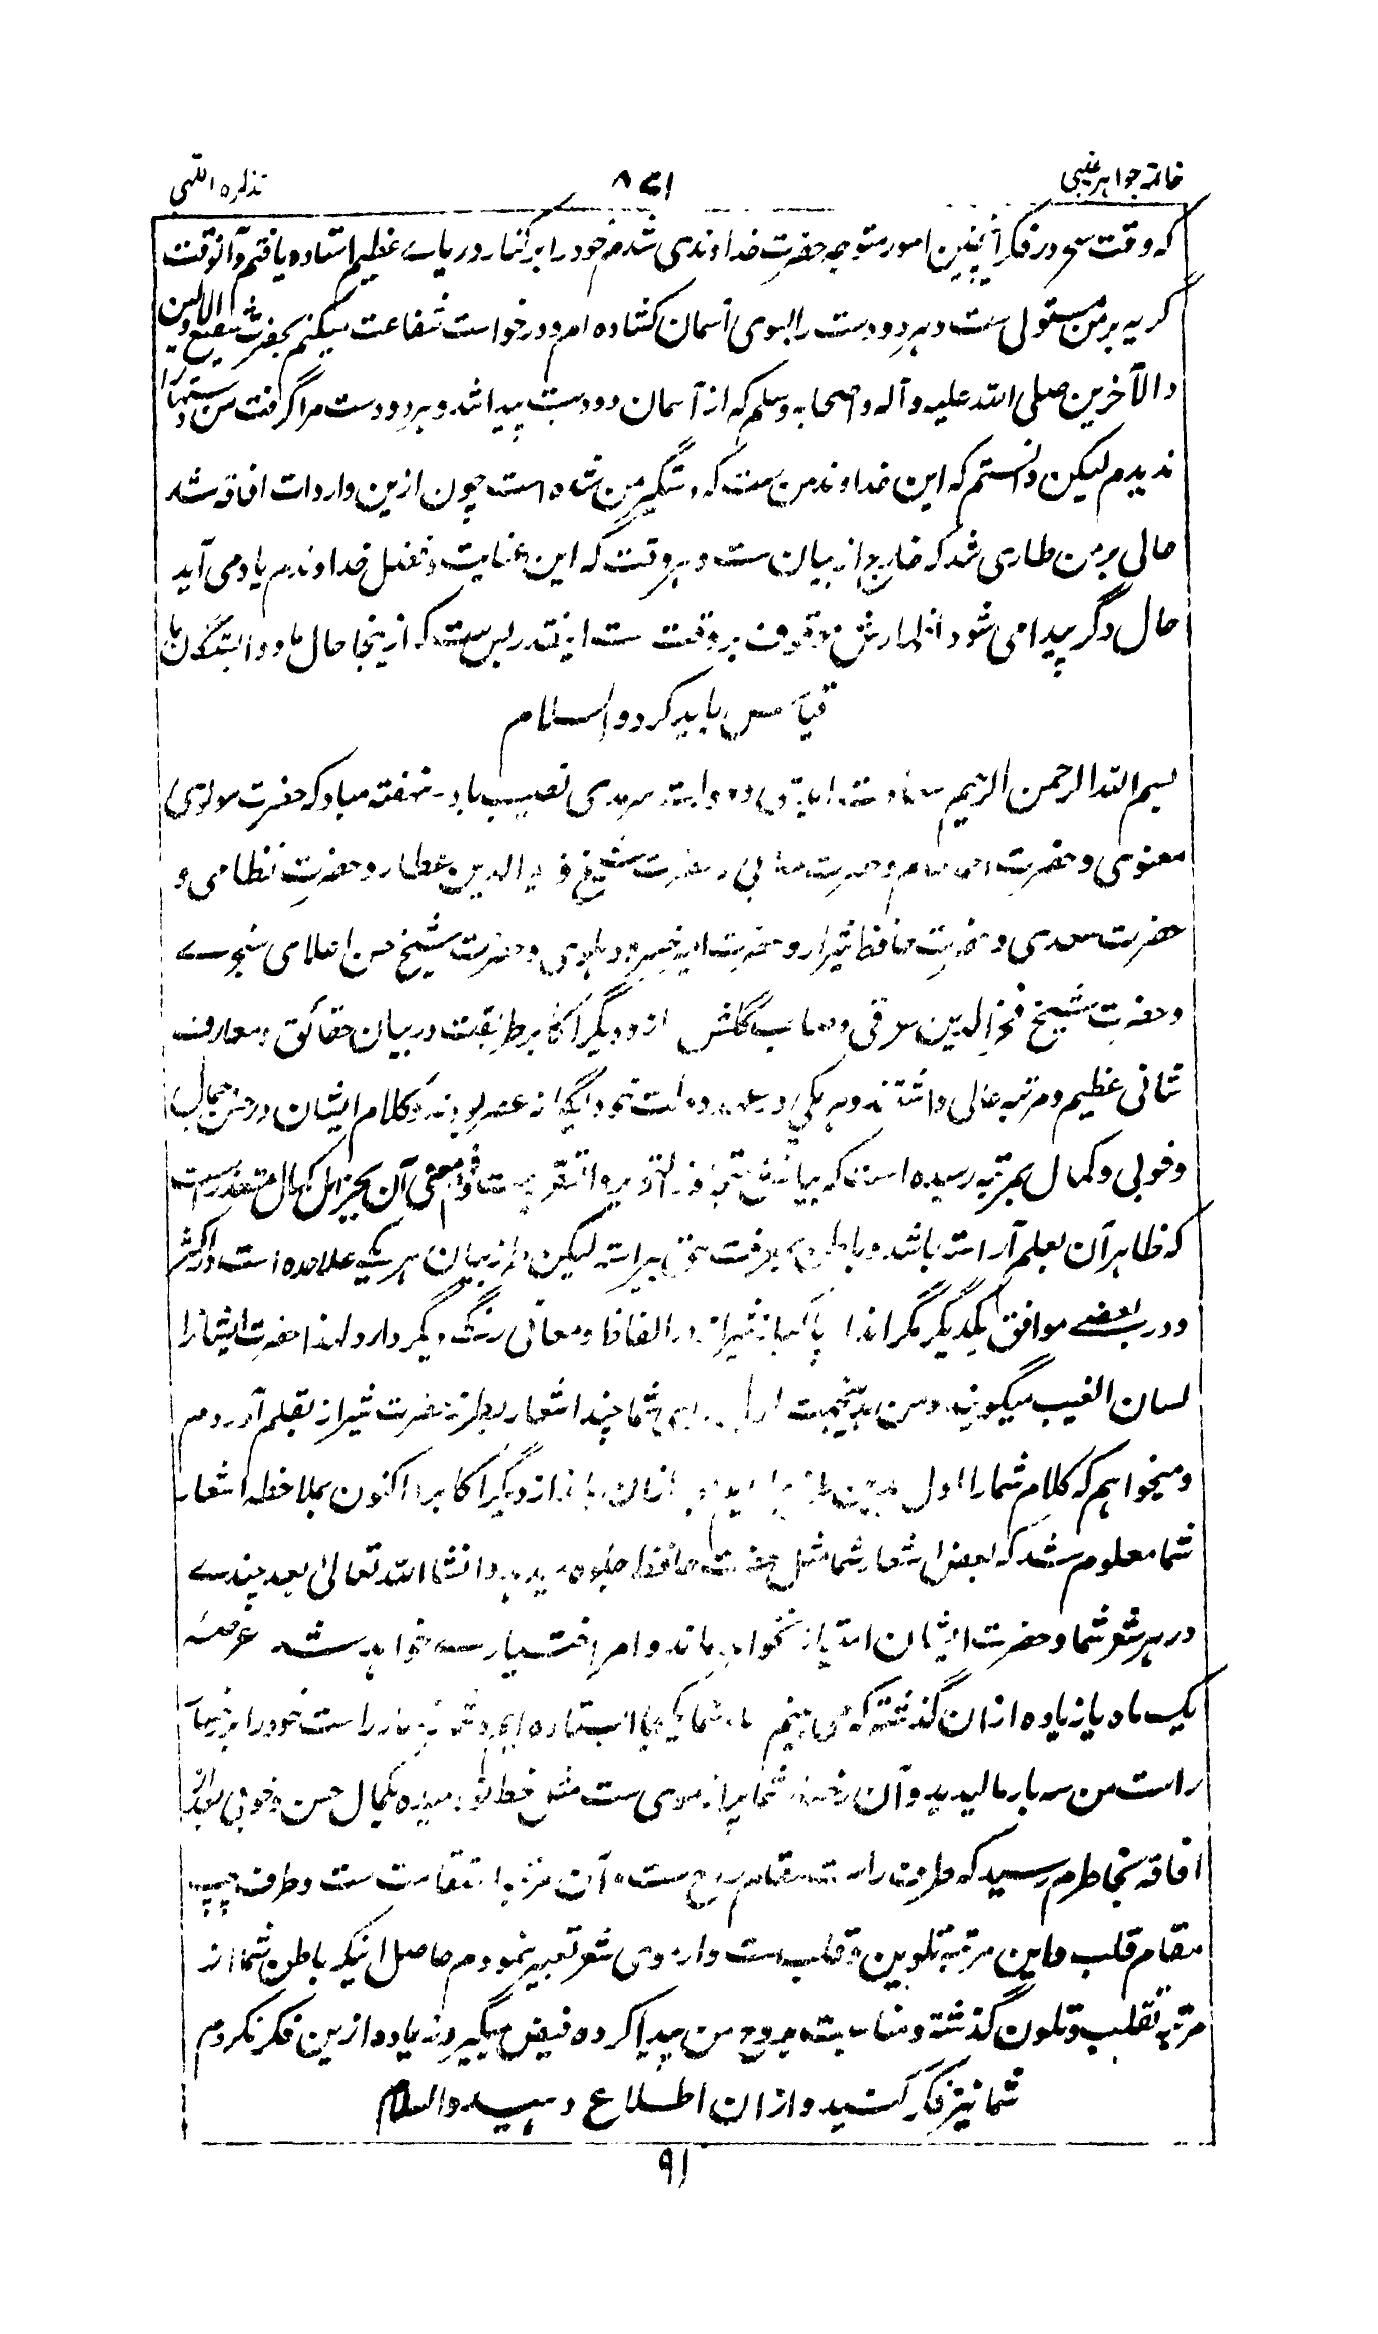 خاتمه جواہر غیبی
تذکرہ اللّٰہی
که وقت سحر در فکر اینچنین امور متوجه حضرت خداوندی شدم خود را بر کنار دریاے عظیم استاده یافتم و آنوقت
گریه بر من مستولی ست و هر دو دست را بسوی آسمان کشاده ام و درخواست شفاعت میکنم بحضرت شفیع الاولین
والآخرین صلی الله علیه وآله واصحابه وسلم که از آسمان دو دست پیدا شد و هر دو دست مرا گرفت من دستها را
ندیدم لیکن دانستم که این خداوند من ست که دستگیر من شده است چون ازین واردات افاقه شد
حالی بر من طاری شد که خارج از بیان ست و هر وقت که این عنایت و تفضل خداوندم یاد می آید
حال دگر پیدا می شود اظهارش موقوف بر وقت ست اینقدر بس ست که ازینجا حال ما و وابستگان ما
قیاس باید کرد والسلام
بسم الله الرحمن الرحیم سعادت ابدی و دولت سرمدی نصیب باد نهفته مباد که حضرت مولوی
معنوی و حضرت و حضرت و حضرت شیخ فرید الدین عطار و حضرت نظامی و
حضرت سعدی و حضرت حافظ شیراز و حضرت امیر خسرو دهلوی و حضرت شیخ حسن اعلای سنجرے
و حضرت شیخ فخر الدین عراقی و صاحب گلشن راز و دیگر اکابر طریقت در بیان حقائق و معارف
شانی عظیم و مرتبه عالی داشتند و هر یکی در عهد دولت خود یگانه عصر بودند و کلام ایشان در حسن و جمال
و خوبی و کمال بمرتبه رسیده است که بیانش و فهم معنی آن بجز اهل کمال متعذر است
که ظاهر آن بعلم آراسته باشد و باطن بمعرفت حق پیراسته لیکن طرز بیان هر یکے علاحده است و اکثر
و در بعضے موافق یکدیگر مگر انداز پاکباز شیراز در الفاظ و معانی رنگ دیگر دارد لهذا حضرت ایشانرا
لسان الغیب میگویند و من چند اشعار بطرز حضرت شیراز بقلم آوردم
و میخواهم که کلام شما را اول همین طرز بعد ازان بانداز دیگر اکابر اکنون بملاحظه اشعار
شما معلوم شد که بعض اشعار شما مثل حضرت حافظ جلوه میدهد و انشاء الله تعالی بعد چندے
در هر شعر شما و حضرت ایشان امتیاز نخواهد ماند و امر اختیارے خواهد شد عرصه
یک ماه یا زیاده ازان گذشته که می بینم ما و شما یکجا استاده ایم و شما رخسار راست خود را برخسار
راست من سه بار مالیدید و آن رخسار شما پر از موی ست مثل خط نو دمیده بکمال حسن و خوبی بعد از
افاقه بخاطرم رسید که طرف راست مقام روح ست و آن مرتبه استقامت ست و طرف چپ
مقام قلب و این مرتبه تلوین و تقلب ست و از موی شعر تعبیر نمودم حاصل اینکه باطن شما از
مرتبه تقلب و تلون گذشته و مناسبت بروح من پیدا کرده فیض میگیرد زیاده ازین فکر نکردم
شما نیز فکر کنید و ازان اطلاع دهید والسلام
۹۱